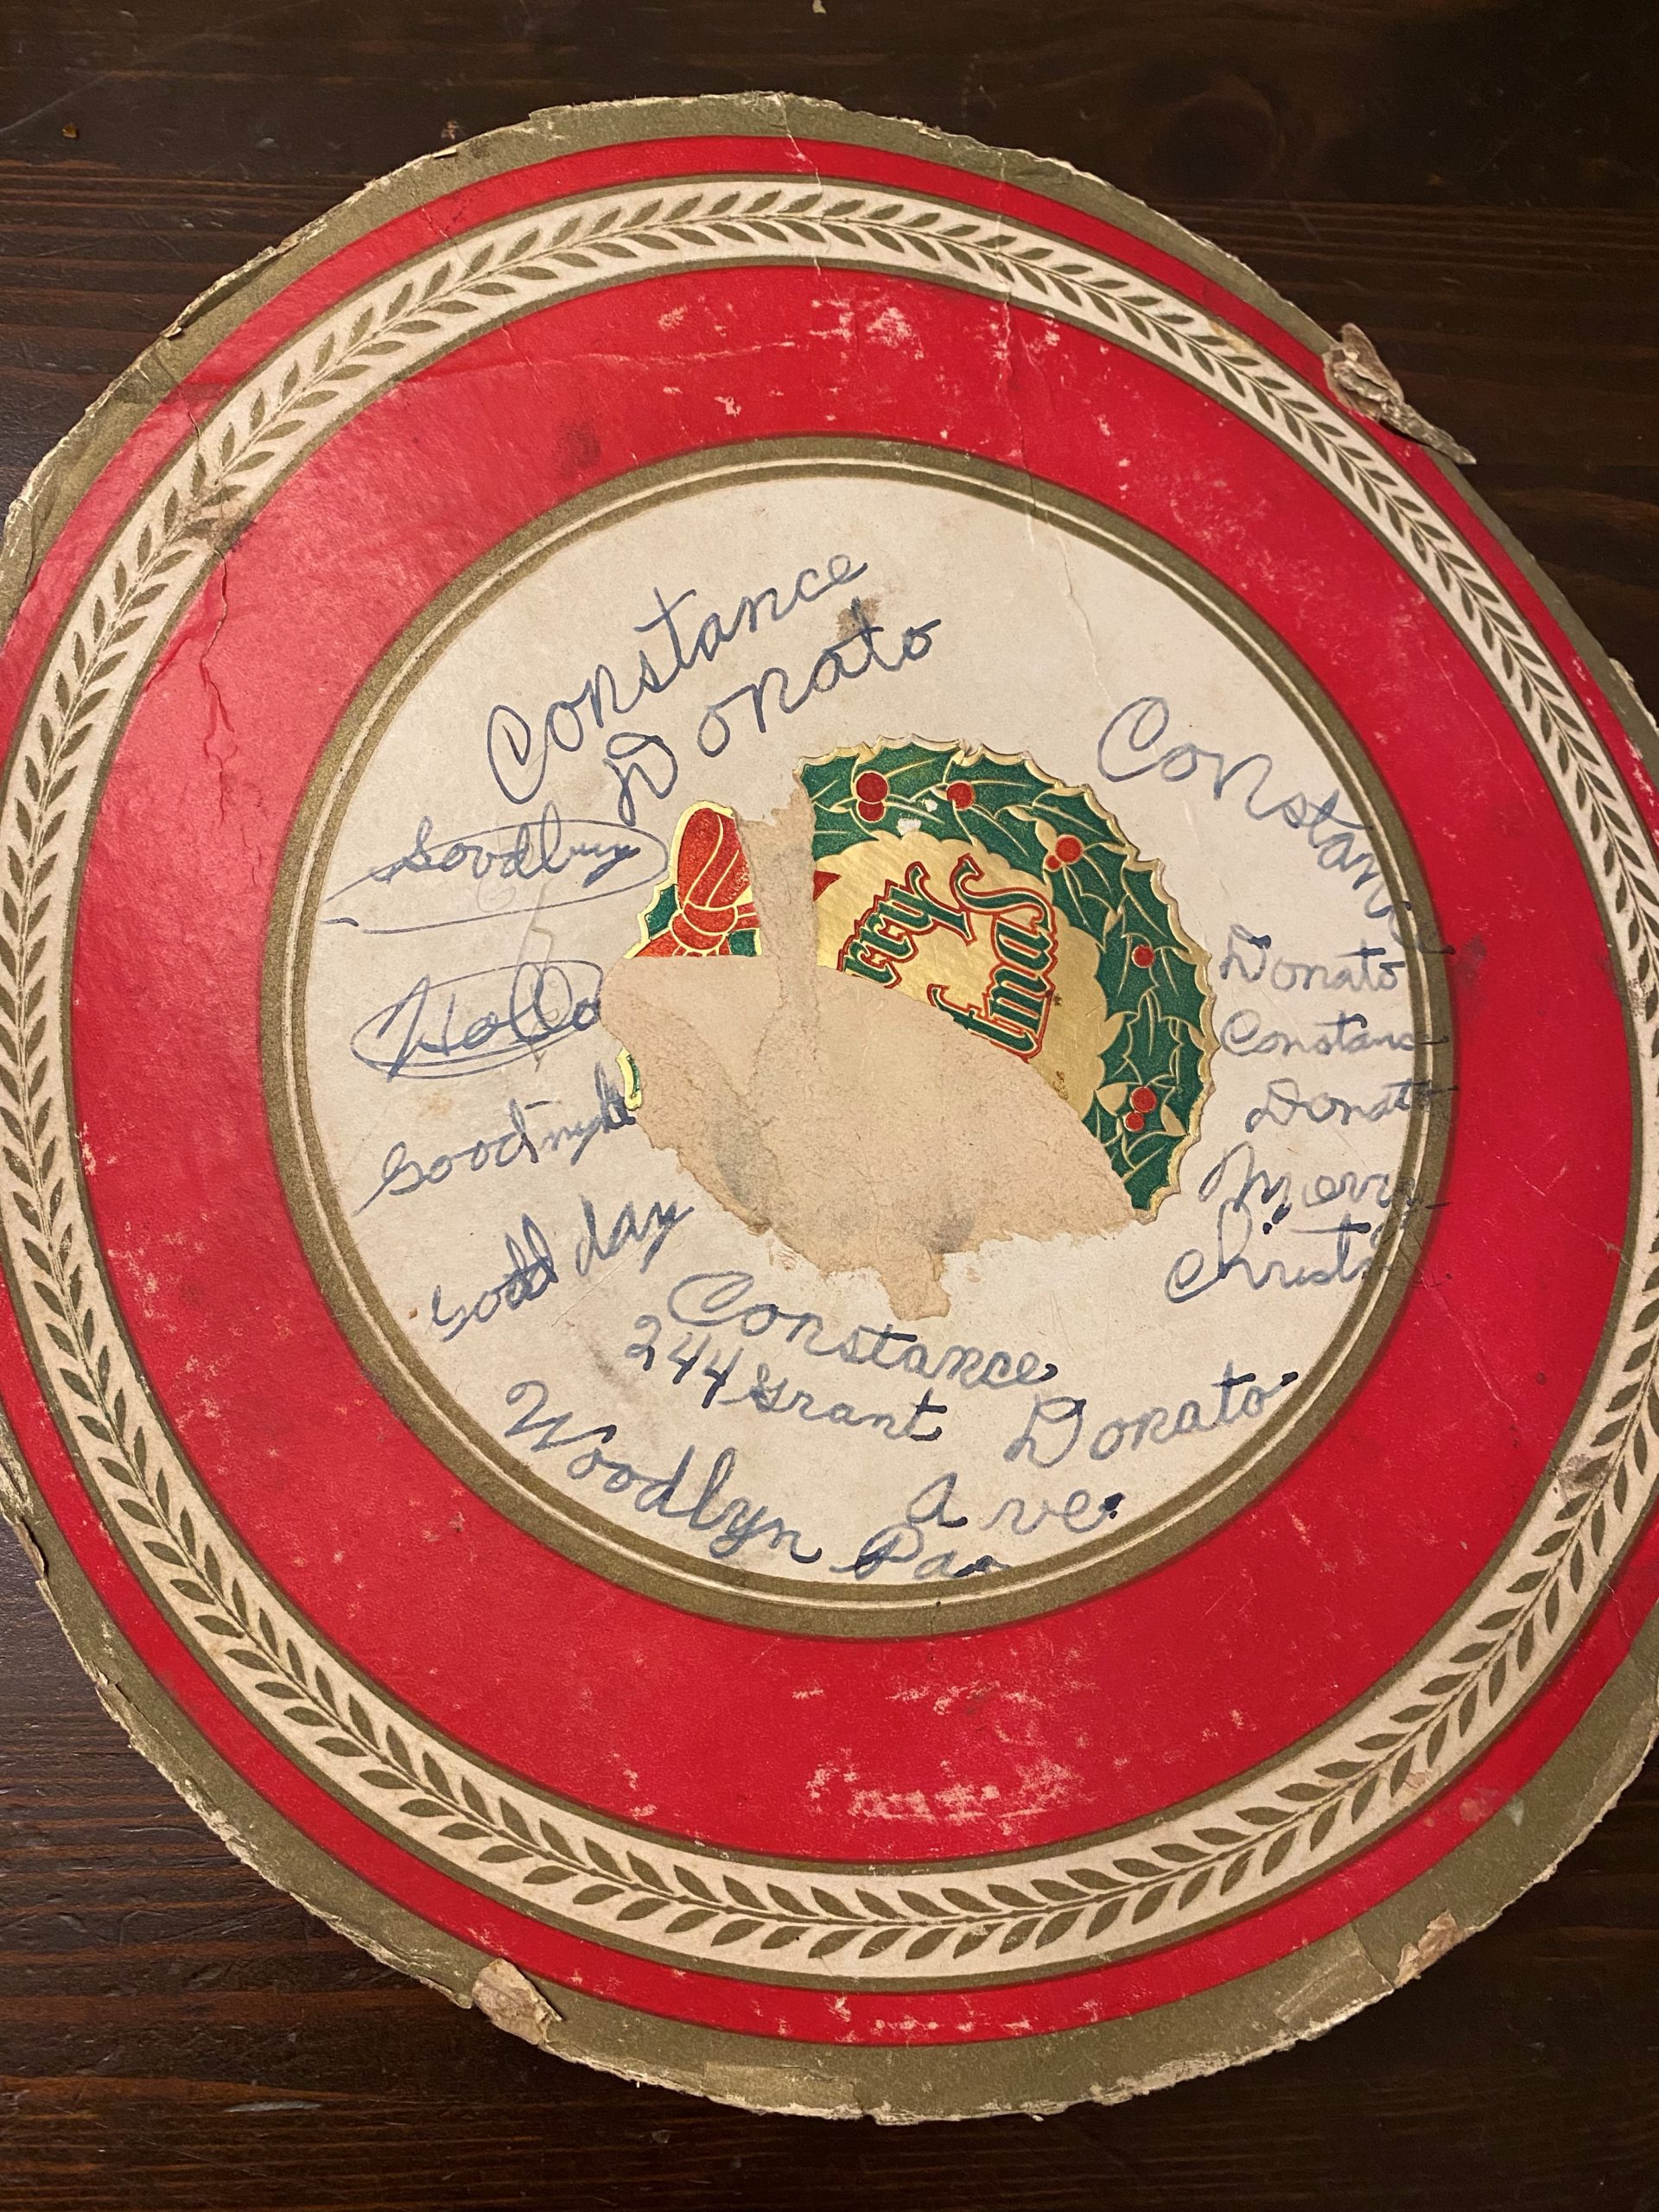 Constance
Donato
Goodbuy
Hello
Goodnight
Good day
Constance
Donato
Constanc
Donato
Merry
Christ
rry
X
tmas
Constance
Donato
244 Grant
Ave.
Woodlyn Pa